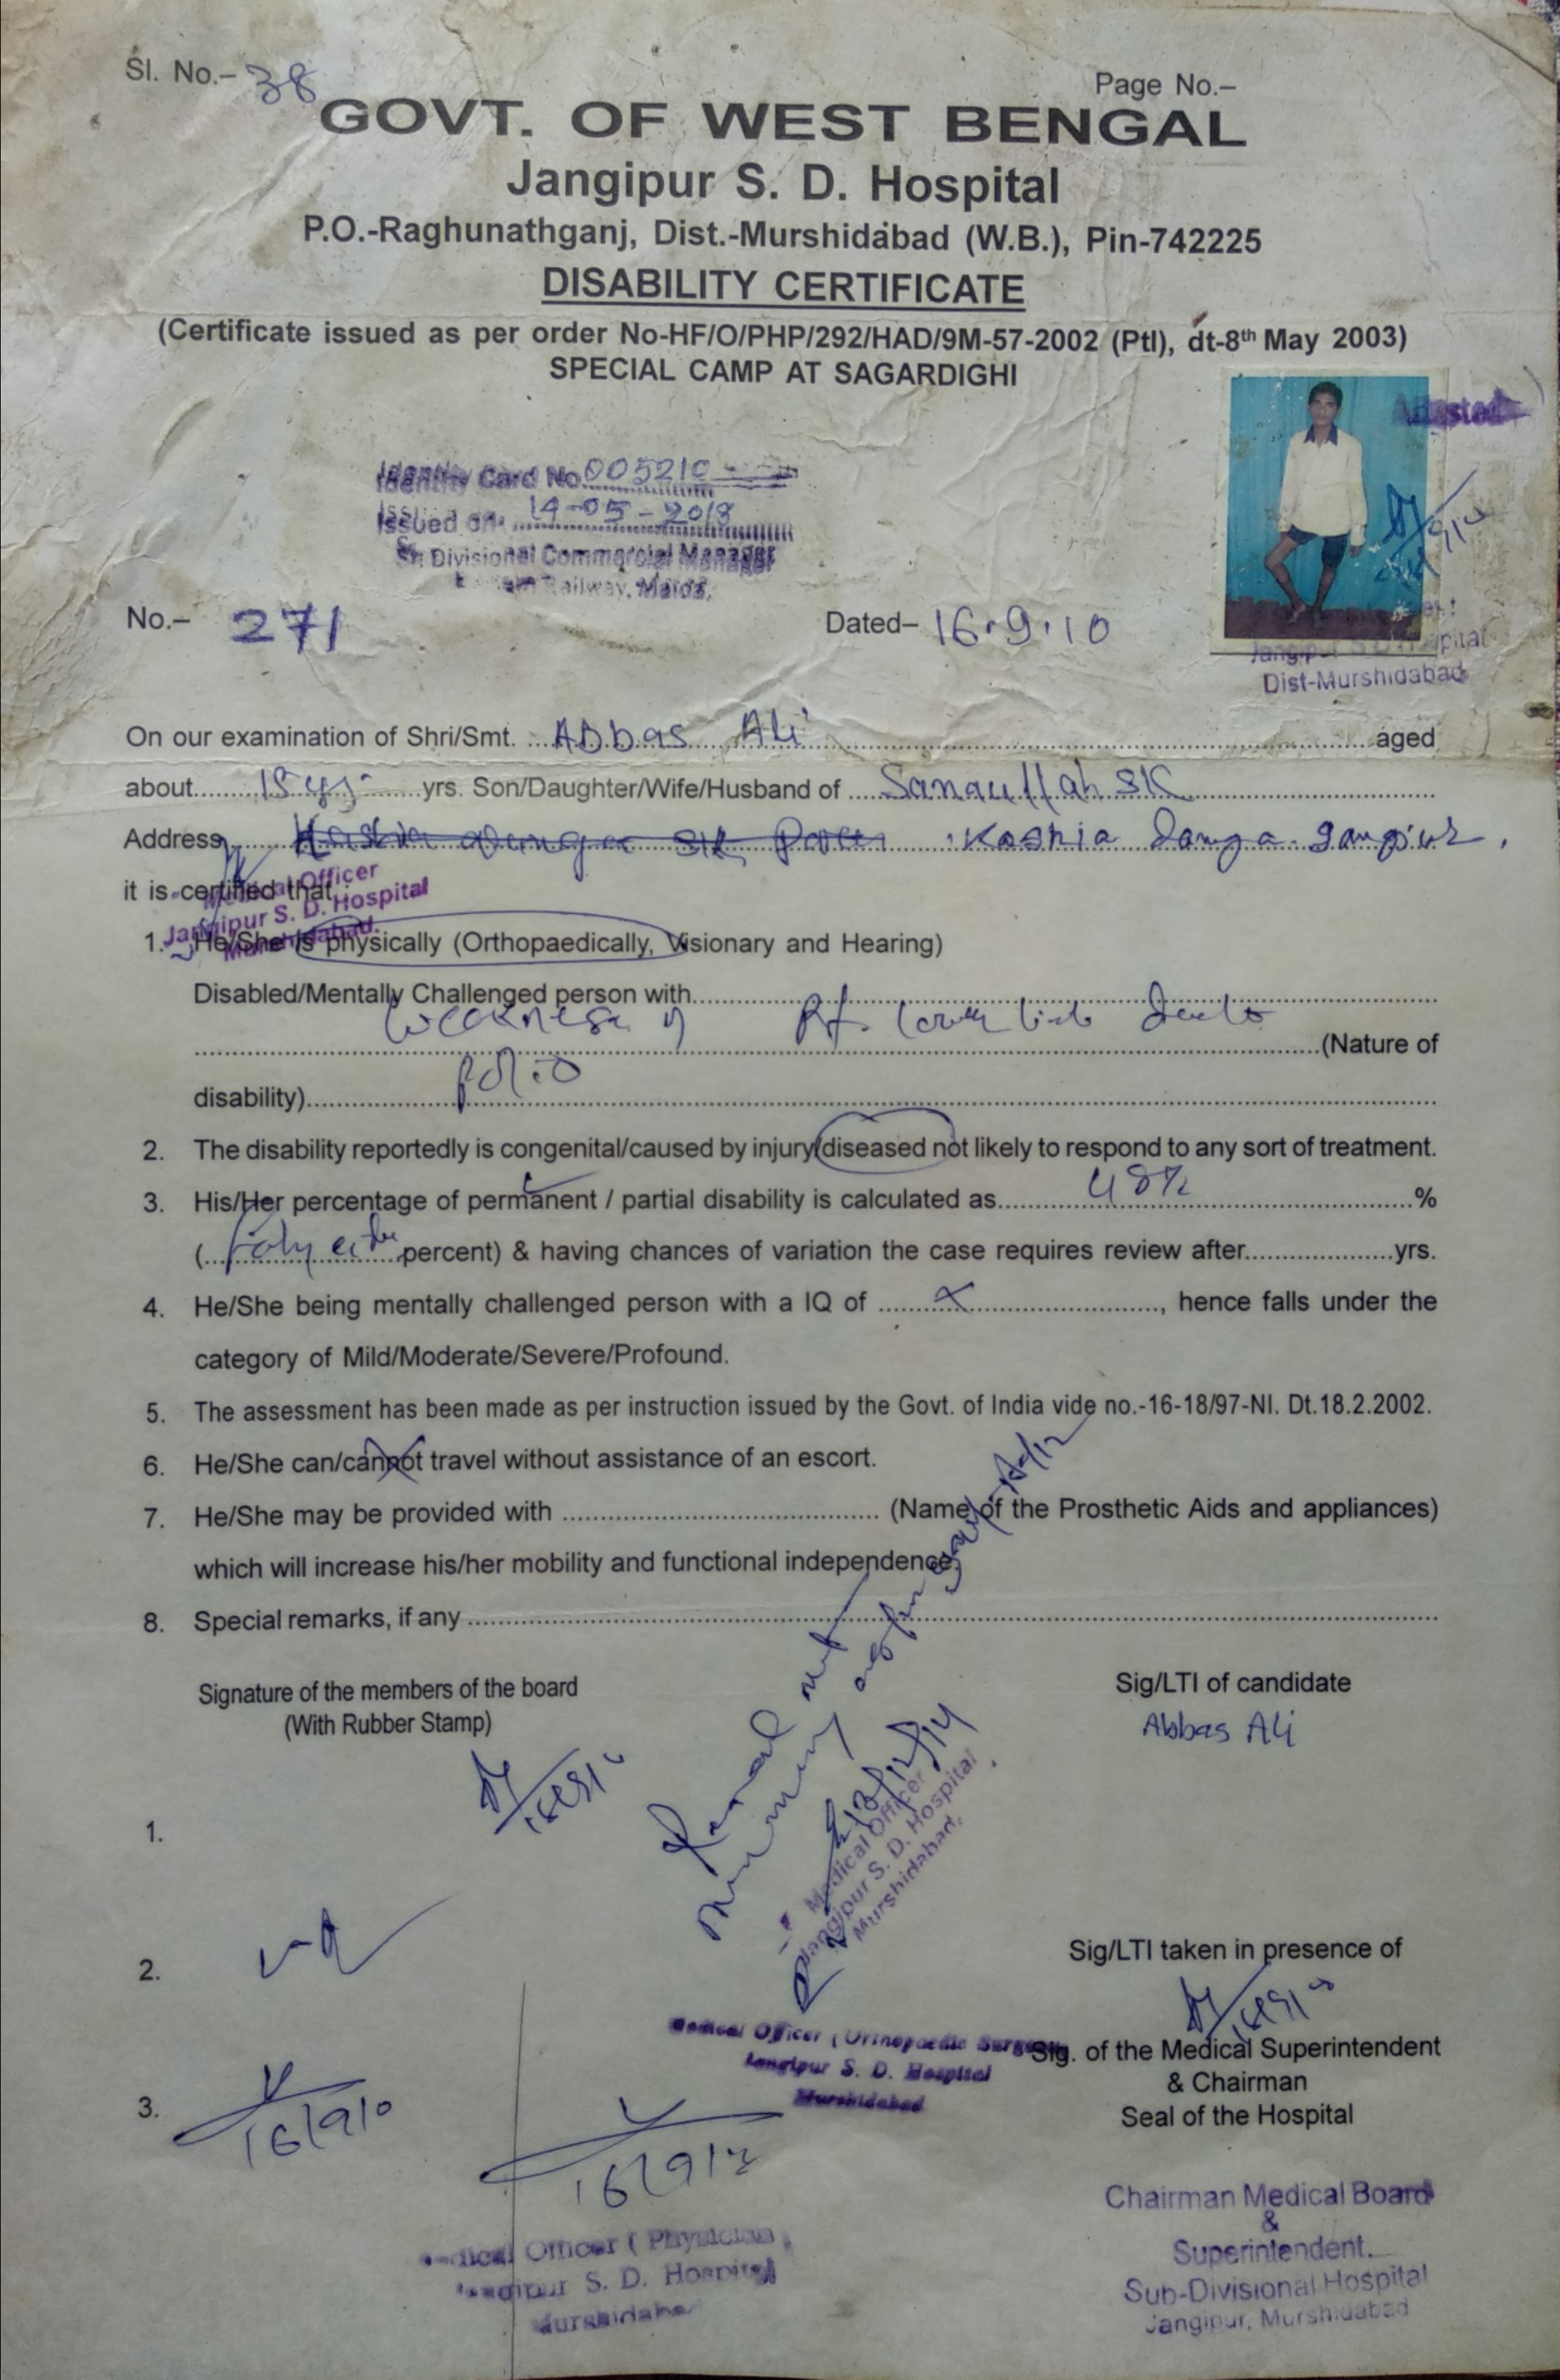 Sl. No.- 38
Page No.-
GOVT. OF WEST BENGAL
Jangipur S. D. Hospital
P.O.-Raghunathganj, Dist.-Murshidabad (W.B.), Pin-742225
DISABILITY CERTIFICATE
(Certificate issued as per order No-HF/O/PHP/292/HAD/9M-57-2002 (Ptl), dt-8th May 2003)
SPECIAL CAMP AT SAGARDIGHI
Attested
Identity Card No. 005210
Issued on. 14-05-2018
Sr. Divisional Commercial Manager
Railway, Malda.
No.- 271
Dated- 16.9.10
Jangipur S D Hospital
Dist-Murshidabad
On our examination of Shri/Smt. Abbas Ali aged
about yrs. Son/Daughter/Wife/Husband of Sanaullah SK
Address Kashia Danga Kashia Danga.
it is certified that
Medical Officer
Jangipur S. D. Hospital
Murshidabad.
1. He/She is physically (Orthopaedically, Visionary and Hearing)
Disabled/Mentally Challenged person with
Weakness of Rt. lower limb due to (Nature of
disability) polio
2. The disability reportedly is congenital/caused by injury/diseased not likely to respond to any sort of treatment.
3. His/Her percentage of permanent / partial disability is calculated as 48% %
( percent) & having chances of variation the case requires review after yrs.
4. He/She being mentally challenged person with a IQ of x, hence falls under the
category of Mild/Moderate/Severe/Profound.
5. The assessment has been made as per instruction issued by the Govt. of India vide no.-16-18/97-NI. Dt.18.2.2002.
6. He/She can/cannot travel without assistance of an escort.
7. He/She may be provided with (Name of the Prosthetic Aids and appliances)
which will increase his/her mobility and functional independence.
8. Special remarks, if any
Signature of the members of the board
(With Rubber Stamp)
Sig/LTI of candidate
Abbas Ali
1.
13/12/14
Medical Officer
Jangipur S. D. Hospital
Murshidabad.
2.
Sig/LTI taken in presence of
Medical Officer (Orthopaedic Surgeon)
Jangipur S. D. Hospital
Murshidabad
Sig. of the Medical Superintendent
& Chairman
Seal of the Hospital
3.
16/9/10
16/9/10
Medical Officer ( Physician )
Jangipur S. D. Hospital
Murshidabad
Chairman Medical Board
&
Superintendent.
Sub-Divisional Hospital
Jangipur, Murshidabad